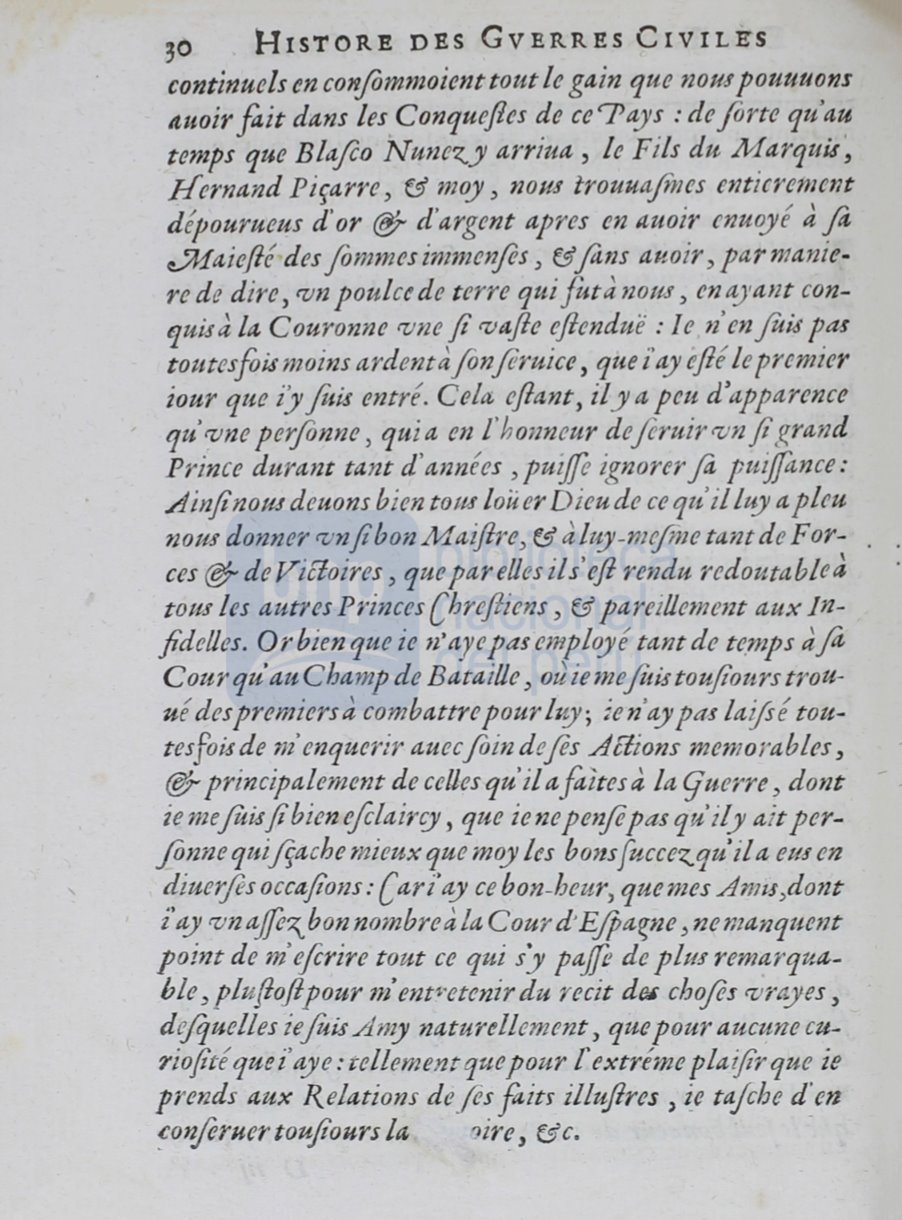 30 HISTORE DES GVERRES CIVILES
continuels en conſommoient tout le gain que nous pouuuons
auoir fait dans les Conqueſtes de ce Pays : de ſorte qu'au
temps que Blaſco Nunez y arriua , le Fils du Marquis ,
Hernand Piçarre, & moy , nous trouuaſmes entierement
dépourueus d'or & d'argent apres en auoir enuoyé à ſa
Maieſté des ſommes immenſes , & ſans auoir, par manie-
re de dire, vn poulce de terre qui fut à nous , en ayant con-
quis à la Couronne vne ſi vaſte eſtenduë : Ie n'en ſuis pas
toutesfois moins ardent à ſon ſeruice, que i'ay eſté le premier
iour que i'y ſuis entré. Cela eſtant, il y a peu d'apparence
qu'vne perſonne , qui a en l'honneur de ſeruir vn ſi grand
Prince durant tant d'années , puiſſe ignorer ſa puiſſance :
Ainſi nous deuons bien tous loüer Dieu de ce qu'il luy a pleu
nous donner vn ſi bon Maiſtre, & à luy-meſme tant de For-
ces & de Victoires , que par elles il s'eſt rendu redoutable à
tous les autres Princes Chreſtiens , & pareillement aux In-
fidelles. Or bien que ie n'aye pas employé tant de temps à ſa
Cour qu'au Champ de Bataille , où ie me ſuis touſiours trou-
ué des premiers à combattre pour luy; ie n'ay pas laiſsé tou-
tesfois de m'enquerir auec ſoin de ſes Actions memorables ,
& principalement de celles qu'il a faites à la Guerre , dont
ie me ſuis ſi bien eſclaircy , que ie ne penſe pas qu'il y ait per-
ſonne qui ſçache mieux que moy les bons ſuccez qu'il a eus en
diuerſes occaſions : Car i'ay ce bon-heur, que mes Amis, dont
i'ay vn aſſez bon nombre à la Cour d'Eſpagne , ne manquent
point de m'eſcrire tout ce qui s'y paſſe de plus remarqua-
ble , pluſtoſt pour m'entretenir du recit des choſes vrayes ,
deſquelles ie ſuis Amy naturellement , que pour aucune cu-
rioſité que i'aye : tellement que pour l'extréme plaiſir que ie
prends aux Relations de ſes faits illuſtres , ie taſche d'en
conſeruer touſiours la oire, &c.
biblioteca
nacional
del perú